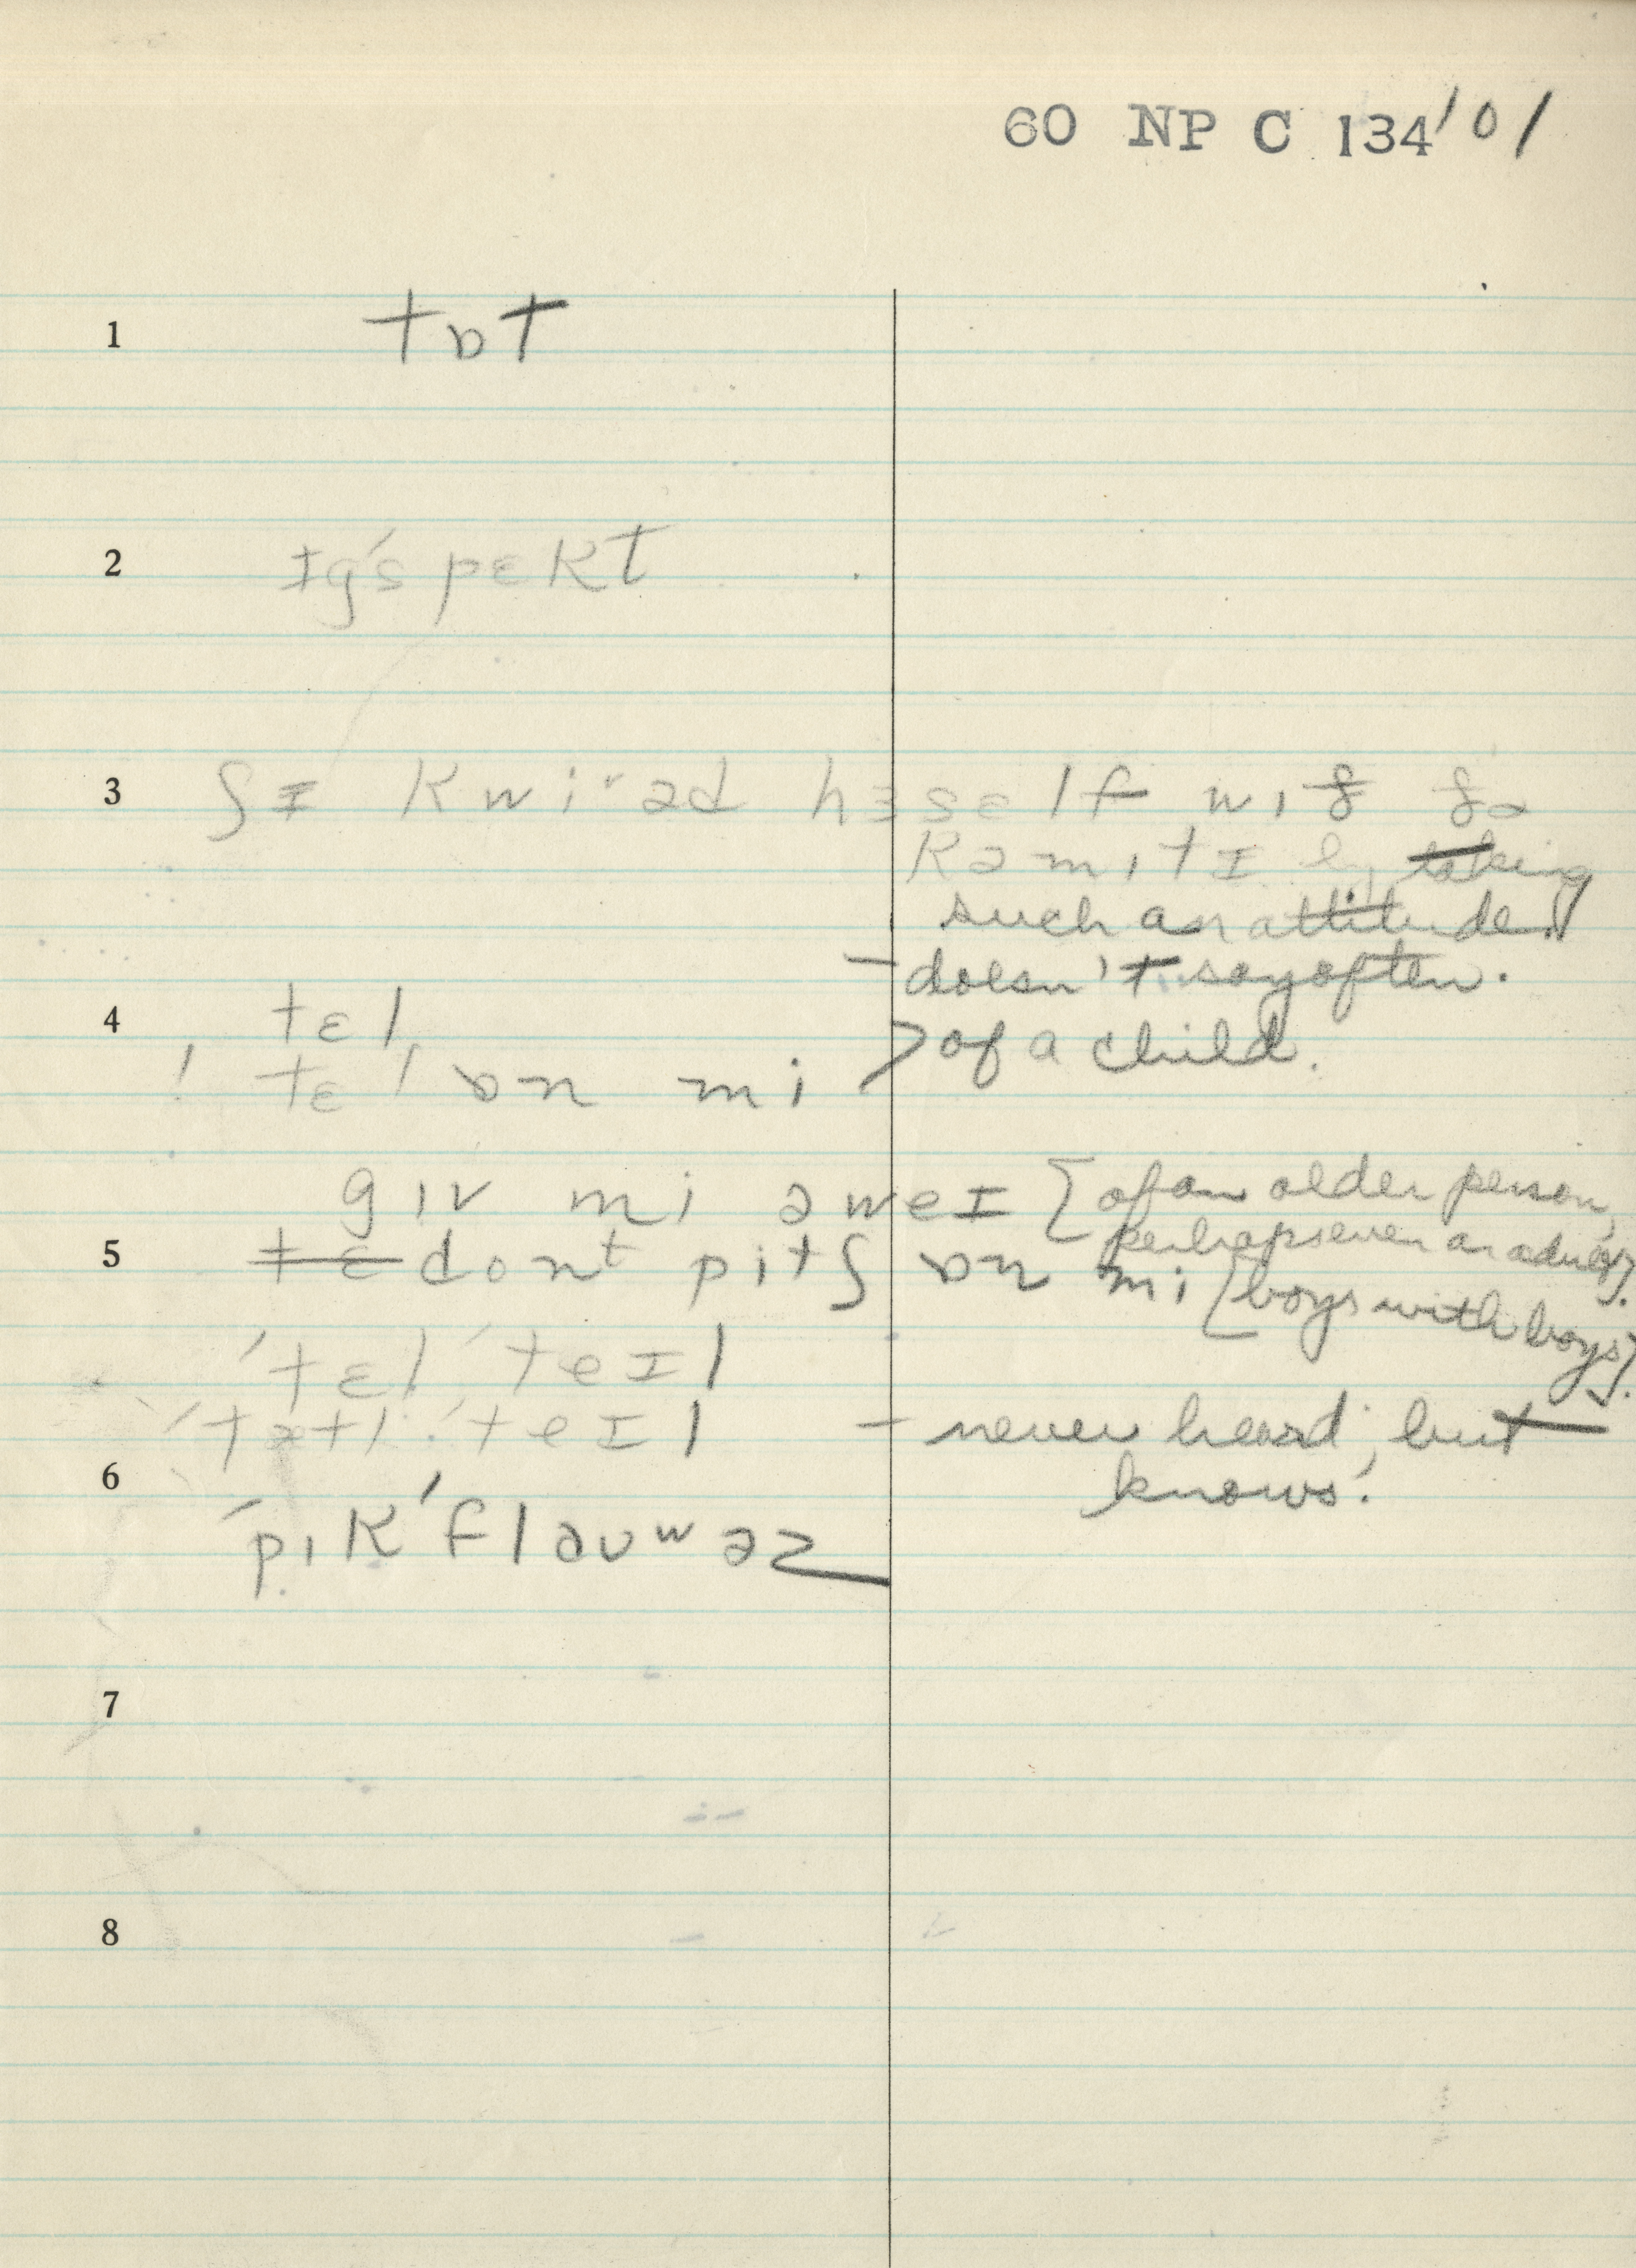 60 NP C 134 101
1 tɒt
2 ɪg'spɛkt
3 ʃɪ kwiʳəd hɜsɛlf wɪð ðə
kəmɪtɪ by taking
such an attitude.
– doesn't say often.
4 tɛl
! tɛl ɒn mi > of a child.
gɪv mi əweɪ [of an older person,
perhaps even an adult].
5 tɛ donᵗ pitʃ ɒn mi [boys with boys].
'tɛl 'teɪl
'tætl 'teɪl – never heard, but
knows.
6
'pɪk 'flaʊʷəz
7
8